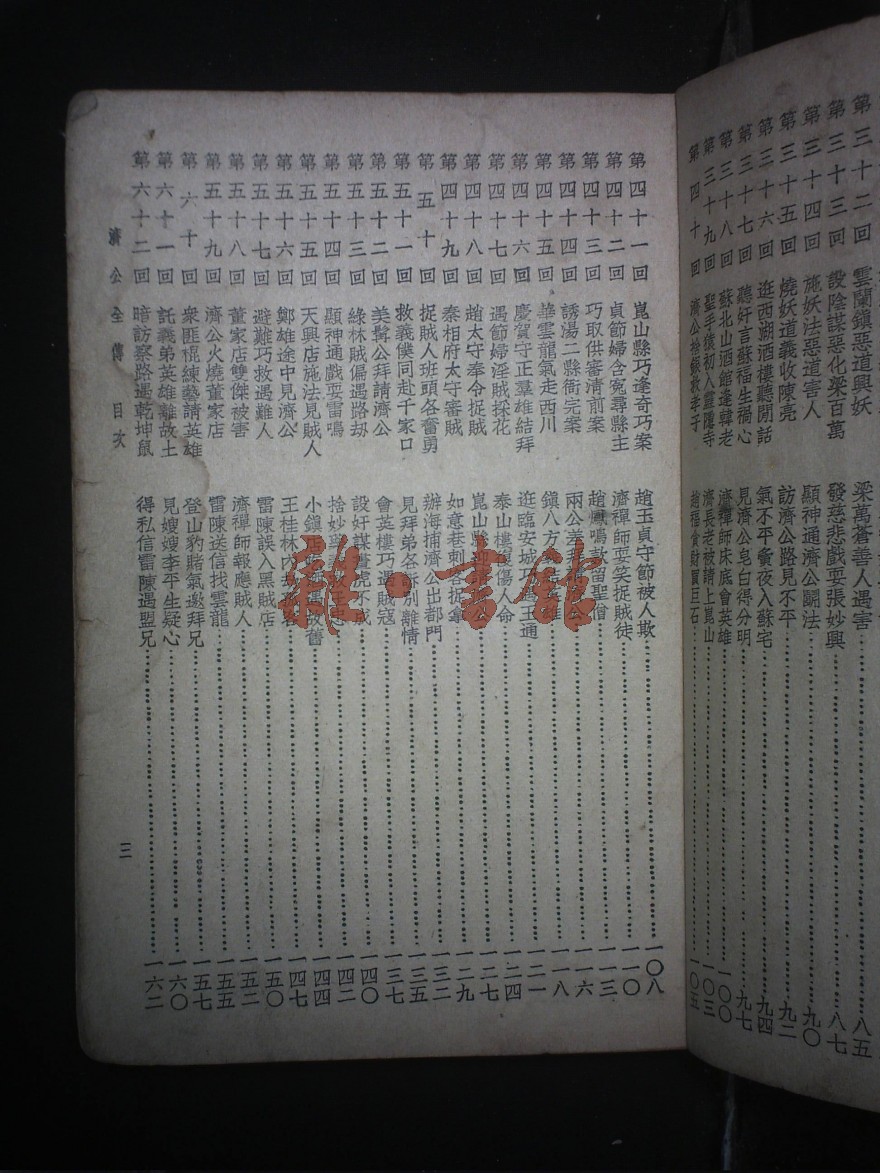 第三十二回 雲蘭鎮惡道興妖 梁萬蒼善人遇害 八五
第三十三回 設陰謀惡化梁百萬 發慈悲戲耍張妙興 八七
第三十四回 施妖法惡道害人 顯神通濟公鬭法 九〇
第三十五回 燒妖道義收陳亮 訪濟公路見不平 九二
第三十六回 逛西湖酒樓聽閒話 氣不平夤夜入蘇宅 九四
第三十七回 聽奸言蘇福生禍心 見濟公皂白得分明 九七
第三十八回 蘇北山酒館逢韓老 濟禪師床底會英雄 一〇〇
第三十九回 聖手猿初入靈隱寺 濟長老被請上崑山 一〇三
第四十回 濟公捨銀救孝子 趙福貪財買巨石 一〇五
第四十一回 崑山縣巧逢奇巧案 趙玉貞守節被人欺 一〇八
第四十二回 貞節婦含冤尋縣主 濟禪師耍笑捉賊徒 一一〇
第四十三回 巧取供審清前案 趙鳳鳴款留聖僧 一一三
第四十四回 誘湯二縣衙完案 兩公差 一一六
第四十五回 華雲龍氣走西川 鎮八方 雄 一一八
第四十六回 慶賀守正羣雄結拜 逛臨安城巧 王通 一二一
第四十七回 遇節婦淫賊採花 泰山樓 傷人命 一二四
第四十八回 趙太守奉令捉賊 崑山縣迎 公 一二七
第四十九回 秦相府太守審賊 如意巷刺客捉拿 一二九
第五十回 捉賊人班頭各奮勇 辦海捕濟公出都門 一三二
第五十一回 救義僕同赴千家口 見拜弟各訴別離情 一三五
第五十二回 美髯公拜請濟公 會英樓巧遇賊寇 一三七
第五十三回 綠林賊偏遇路劫 設奸謀董虎不成 一四〇
第五十四回 顯神通戲耍雷鳴 捨妙藥 一四二
第五十五回 天興店施法見賊人 小鎮店 遇故舊 一四四
第五十六回 鄭雄途中見濟公 王桂林內 一四七
第五十七回 避難巧救遇難人 雷陳誤入黑賊店 一五〇
第五十八回 董家店雙傑被害 濟禪師報應賊人 一五二
第五十九回 濟公火燒董家店 雷陳送信找雲龍 一五五
第六十回 衆匪棍練藝請英雄 登山豹賭氣邀拜兄 一五七
第六十一回 託義弟英雄離故土 見嫂嫂李平生疑心 一六〇
第六十二回 暗訪察路遇乾坤鼠 得私信雷陳遇盟兄 一六二
濟公全傳 目次 三
雜·書館